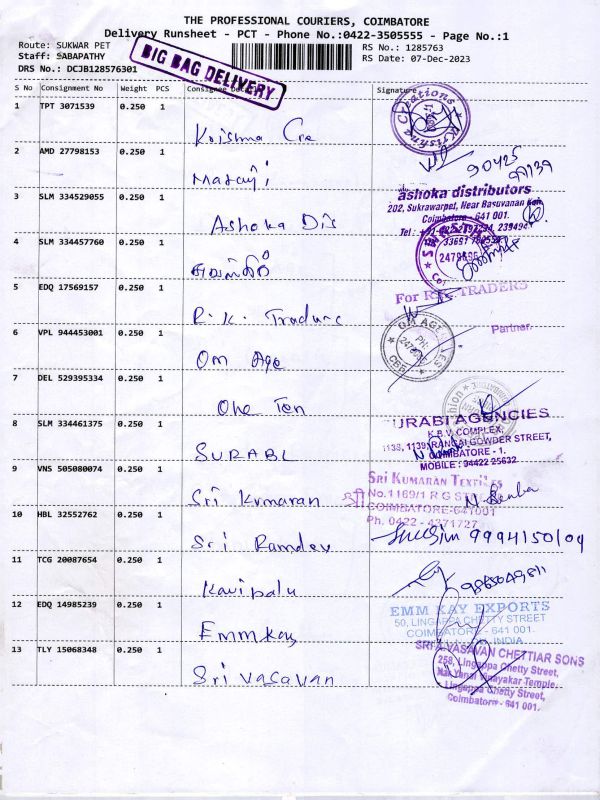 THE PROFESSIONAL COURIERS, COIMBATORE
Delivery Runsheet - PCT - Phone No.:0422-3505555 - Page No.:1
Route: SUKWAR PET
RS No.: 1285763
Staff: SABAPATHY
RS Date: 07-Dec-2023
DRS No.: DCJB128576301
BIG BAG DELIVERY
S No Consignment No Weight PCS Consignee Signature
1 TPT 3071539 0.250 1 Krishna Cre
Krishna Creations
2 AMD 27798153 0.250 1 Mataji
90425
3 SLM 334529055 0.250 1 Ashoka Dis
ashoka distributors
202, Sukrawarpet, Near Basuvanan Koil,
Coimbatore - 641 001.
4 SLM 334457760 0.250 1
5 EDQ 17569157 0.250 1 R.K. Traders
For R.K. TRADERS
Partner.
6 VPL 944453001 0.250 1 Om Age
OM AGENCIES
CBE
7 DEL 529395334 0.250 1 One Ten
8 SLM 334461375 0.250 1 SURABI
URABI AGENCIES
K.B.V. COMPLEX,
1138, 1139, RANGAI GOWDER STREET,
COIMBATORE - 1.
MOBILE : 94422 25632
9 VNS 505080074 0.250 1 Sri Kumaran
SRI KUMARAN TEXTILES
No.1169/1 R G ST
COIMBATORE-641001
Ph. 0422 - 4371727
10 HBL 32552762 0.250 1 Sri Ramdev
9994150109
11 TCG 20087654 0.250 1 Kavipalu
12 EDQ 14985239 0.250 1 Emmkay
EMM KAY EXPORTS
50, LINGAPPA CHETTY STREET
COIMBATORE - 641 001.
INDIA
13 TLY 15068348 0.250 1 Sri Vasavan
SRI VASAVAN CHETTIAR SONS
258, Lingappa Chetty Street,
Vinayakar Temple,
Lingappa Chetty Street,
Coimbatore - 641 001.